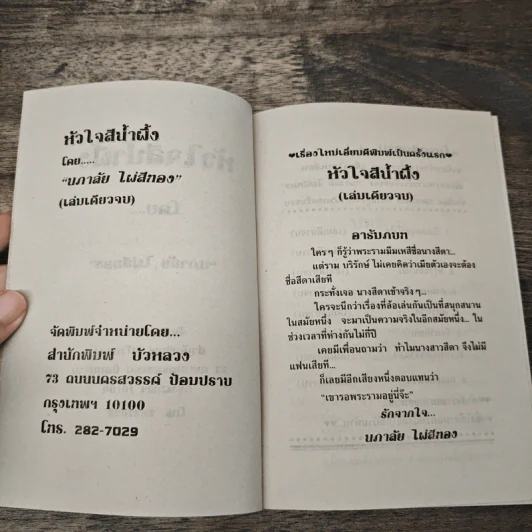 หัวใจสีน้ำผึ้ง
โดย.....
"นภาลัย ไผ่สีทอง"
(เล่มเดียวจบ)
จัดพิมพ์จำหน่ายโดย...
สำนักพิมพ์ บัวหลวง
73 ถนนนครสวรรค์ ป้อมปราบ
กรุงเทพฯ 10100
โทร. 282-7029
♥เรื่องใหม่เอี่ยมตีพิมพ์เป็นครั้งแรก♥
หัวใจสีน้ำผึ้ง
(เล่มเดียวจบ)
อารัมภบท
ใครๆ ก็รู้ว่าพระรามมีมเหสีชื่อนางสีดา...
แต่ราม บริรักษ์ ไม่เคยคิดว่าเมียตัวเองจะต้อง
ชื่อสีดาเสียที
กระทั่งเจอ นางสีดาเข้าจริงๆ...
ใครจะนึกว่าเรื่องที่ล้อเล่นกันเป็นที่สนุกสนาน
ในสมัยหนึ่ง จะมาเป็นความจริงในอีกสมัยหนึ่ง... ใน
ช่วงเวลาที่ห่างกันไม่กี่ปี
เคยมีเพื่อนถามว่า ทำไมนางสาวสีดา จึงไม่มี
แฟนเสียที...
ก็เลยมีอีกเสียงหนึ่งตอบแทนว่า
"เขารอพระรามอยู่นี่จ๊ะ"
รักจากใจ...
นภาลัย ไผ่สีทอง